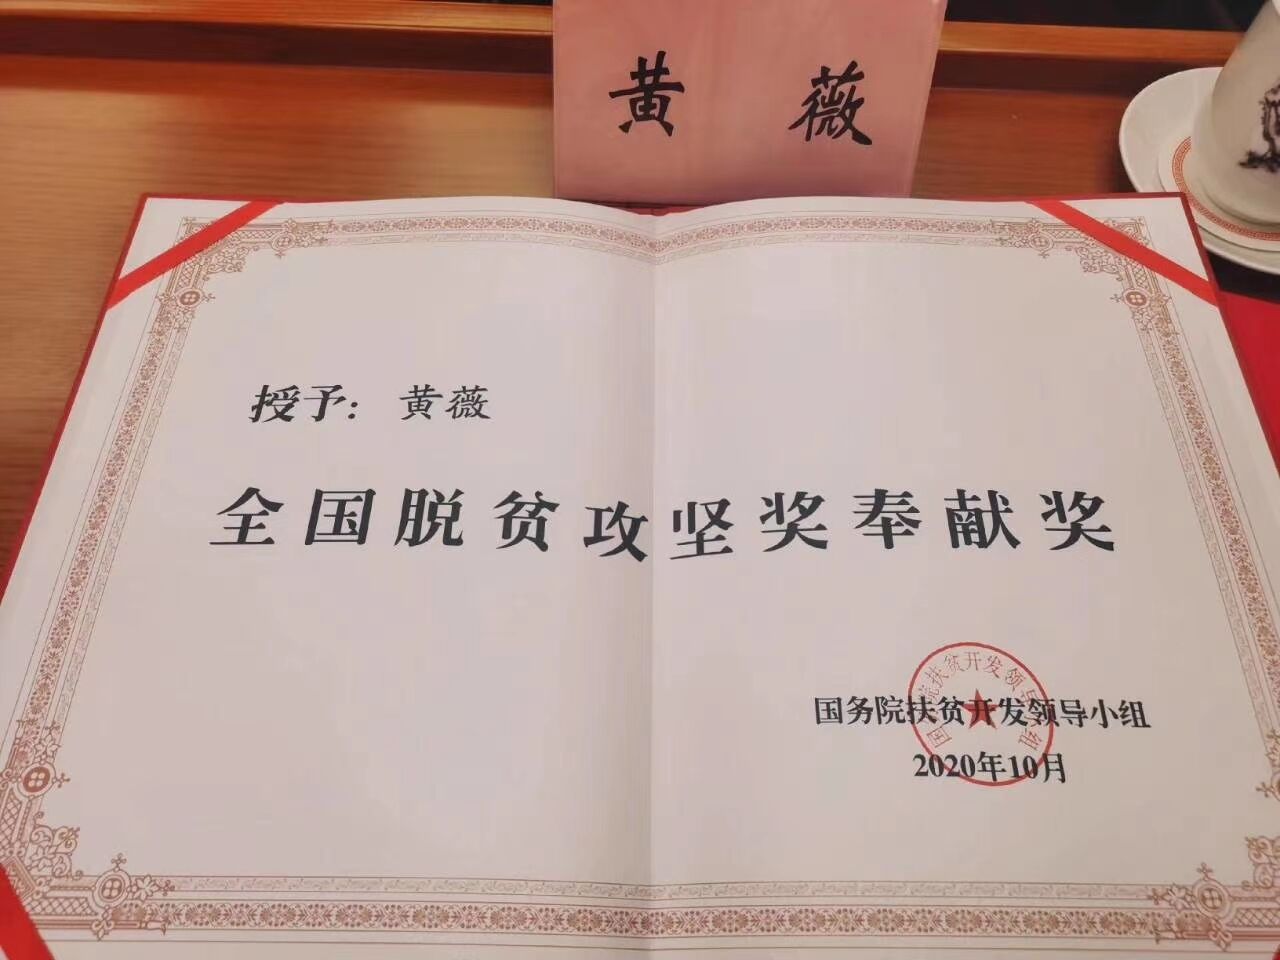 黄薇
授予：黄薇
全国脱贫攻坚奖奉献奖
国务院扶贫开发领导小组
国务院扶贫开发领导小组
2020年10月